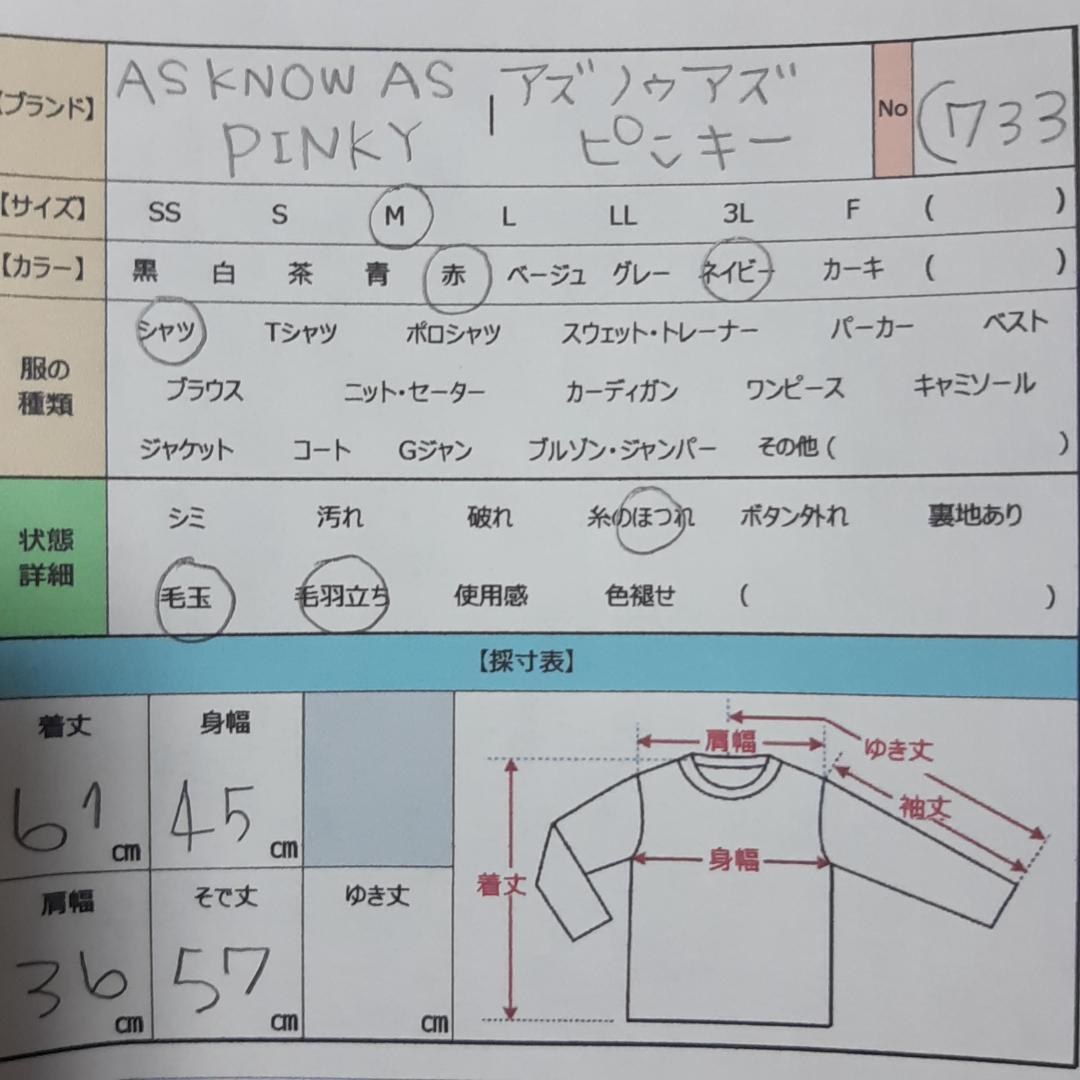 【ブランド】 AS KNOW AS アズノゥアズ No (733
PINKY | ピンキー
【サイズ】 SS S M L LL 3L F ( )
【カラー】 黒 白 茶 青 赤 ベージュ グレー ネイビー カーキ ( )
服の種類
シャツ Tシャツ ポロシャツ スウェット・トレーナー パーカー ベスト
ブラウス ニット・セーター カーディガン ワンピース キャミソール
ジャケット コート Gジャン ブルゾン・ジャンパー その他 ( )
状態詳細
シミ 汚れ 破れ 糸のほつれ ボタン外れ 裏地あり
毛玉 毛羽立ち 使用感 色褪せ ( )
【採寸表】
着丈 身幅
61 cm 45 cm
肩幅 そで丈 ゆき丈
36 cm 57 cm cm
肩幅 ゆき丈
袖丈
身幅
着丈